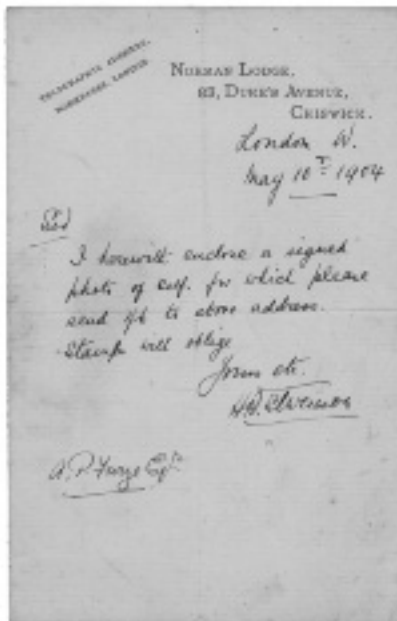 TELEGRAPHIC ADDRESS,
LONDON
NORMAN LODGE,
83, DUKE'S AVENUE,
CHISWICK.
London W.
May 10th 1904
Sir
I herewith enclose a signed
photo of self. for which please
send to above address.
Stamps will oblige
Yours etc.
A. P. Esqre